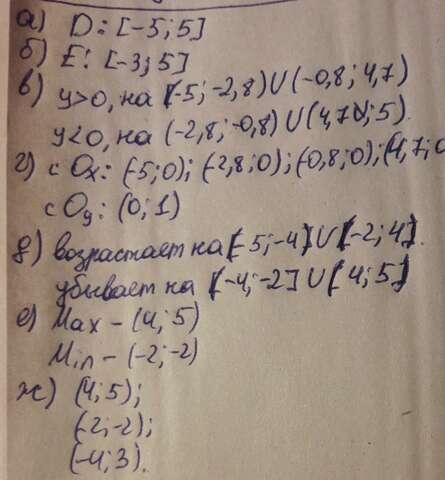 а) D: [-5; 5]
б) E: [-3; 5]
в) y>0, на (-5; -2,8)U(-0,8; 4,7)
y<0, на (-2,8; -0,8)U(4,7; 5).
г) с Ox: (-5;0); (-2,8;0); (-0,8;0); (4,7;0
с Oy: (0;1)
д) возрастает на [-5;-4]U[-2;4].
убывает на [-4;-2]U[4;5]
е) Max - (4;5)
Min - (-2;-2)
ж) (4;5);
(-2;-2);
(-4;3).